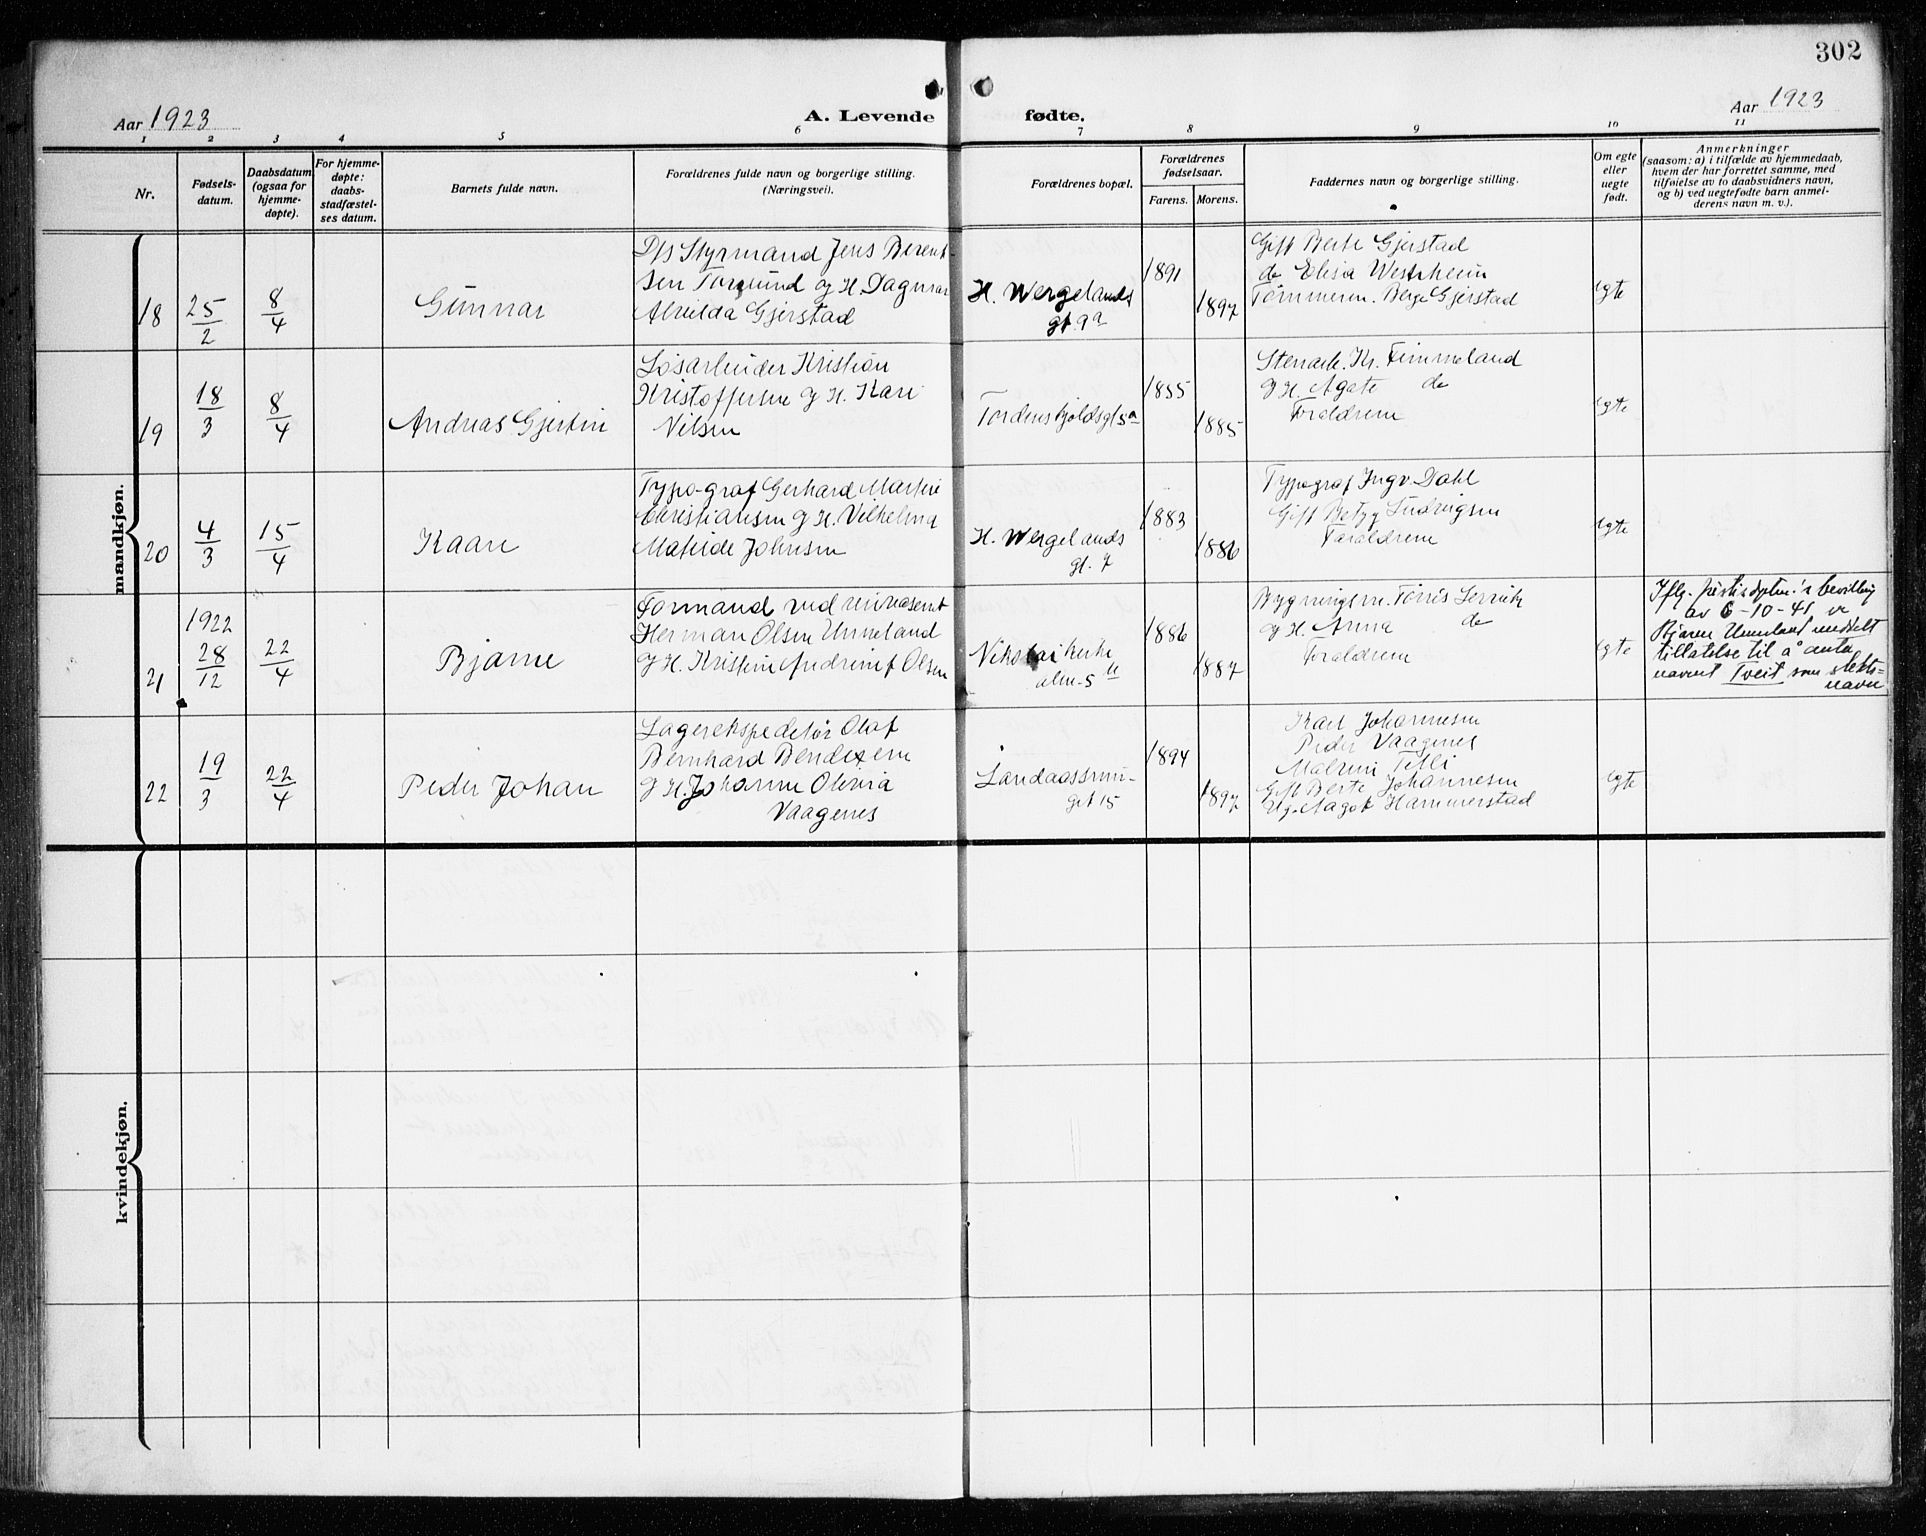 302
Aar 1923
A. Levende fødte.
Aar 1923
1 2 3 4 5 6 7 8 9 10 11
Nr.
Fødsels-
datum.
Daabsdatum
(ogsaa for
hjemme-
døpte).
For hjemme-
døpte:
daabs-
stadfæstel-
ses datum.
Barnets fulde navn.
Forældrenes fulde navn og borgerlige stilling.
(Næringsvei).
Forældrenes bopæl.
Forældrenes
fødselsaar.
Farens. Morens.
Faddernes navn og borgerlige stilling.
Om egte
eller
uegte
født.
Anmerkninger
(saasom: a) i tilfælde av hjemmedaab,
hvem der har forrettet samme, med
tilføielse av to daabsvidners navn,
og b) ved uegtefødte barn anmel-
derens navn m. v.).
mandkjøn.
18
25/2
8/4
Gunnar
D/s Styrmand Jens Berent-
sen Torsund og H. Dagmar
Alvilda Gjerstad
H. Wergelands
gt. 9a
1891
1897
Gift Berte Gjerstad
do Elisa Westrheim
Tømmerm. Berge Gjerstad
egte
19
18/3
8/4
Andreas Gjertin
Løsarbeider Kristian
Kristoffersen og H. Kari
Nilsen
Tordenskjoldsgt 5a
1855
1885
Stenarb. Kr. Fimmeland
og H. Agate do
Forældrene
egte
20
4/3
15/4
Kaare
Typograf Gerhard Martin
Christiansen og H. Vilhelma
Matilde Johnsen
H. Wergelands
gt. 7
1883
1886
Typograf Ingv. Dahl
Gift Betzy Ludvigsen
Forældrene
egte
21
1922
28/12
22/4
Bjarne
Formand ved renvasenet
Herman Olsen Unneland
og H. Kristine Andrine f. Olsen
Nikolaikirke
alm. 5
1886
1887
Bygningsm. Torris
og H. Anna do
Forældrene
egte
Iflg. justisdptm.'s bevilling
av 6-10-41 er
Bjarne Unneland meddelt
tillatelse til å anta
navnet Tveit som slekts-
navn
22
19/3
22/4
Peder Johan
Lagerekspeditør Olaf
Bernhard Bendixen
og H. Johanne Olivia
Vaagenes
Landaassvin-
gt 15
1894
1897
Karl Johannesen
Peder Vaagenes
Malvin Telli
Gift Berte Johannesen
Ug. Aagot Hammerstad
egte
kvindekjøn.